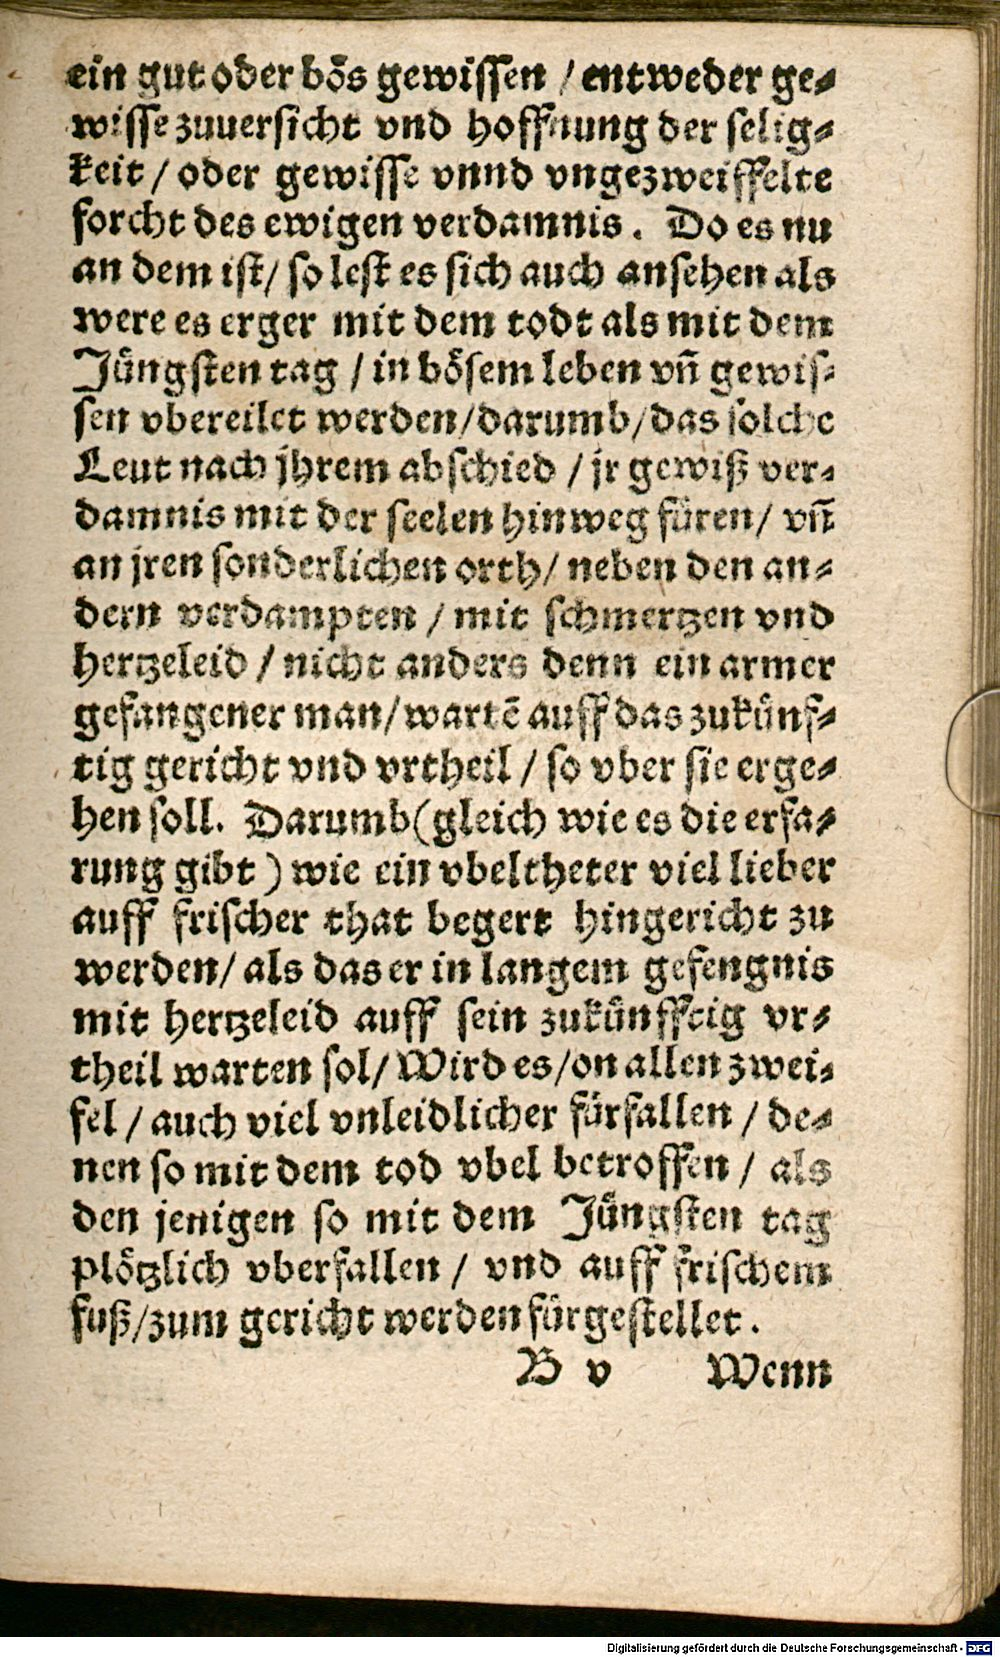 ein gut oder bös gewissen / entweder ge-
wisse zuuersicht vnd hoffnung der selig-
keit / oder gewisse vnnd vngezweiffelte
forcht des ewigen verdamnis. Do es nu
an dem ist/ so lest es sich auch ansehen als
were es erger mit dem todt als mit dem
Jüngsten tag / in bösem leben vñ gewis-
sen vbereilet werden/darumb/das solche
Leut nach jhrem abschied / jr gewiß ver-
damnis mit der seelen hinweg füren/ vñ
an jren sonderlichen orth/ neben den an-
dern verdampten / mit schmertzen vnd
hertzeleid / nicht anders denn ein armer
gefangener man/wartē auff das zukünf-
tig gericht vnd vrtheil / so vber sie erge-
hen soll. Darumb(gleich wie es die erfa-
rung gibt) wie ein vbeltheter viel lieber
auff frischer that begert hingericht zu
werden/ als das er in langem gefengnis
mit hertzeleid auff sein zukünfftig vr-
theil warten sol/ Wird es/on allen zwei-
fel / auch viel vnleidlicher fürfallen / de-
nen so mit dem tod vbel betroffen / als
den jenigen so mit dem Jüngsten tag
plötzlich vberfallen / vnd auff frischem
fuß/zum gericht werden fürgestellet.
B v Wenn
Digitalisierung gefördert durch die Deutsche Forschungsgemeinschaft - DFG